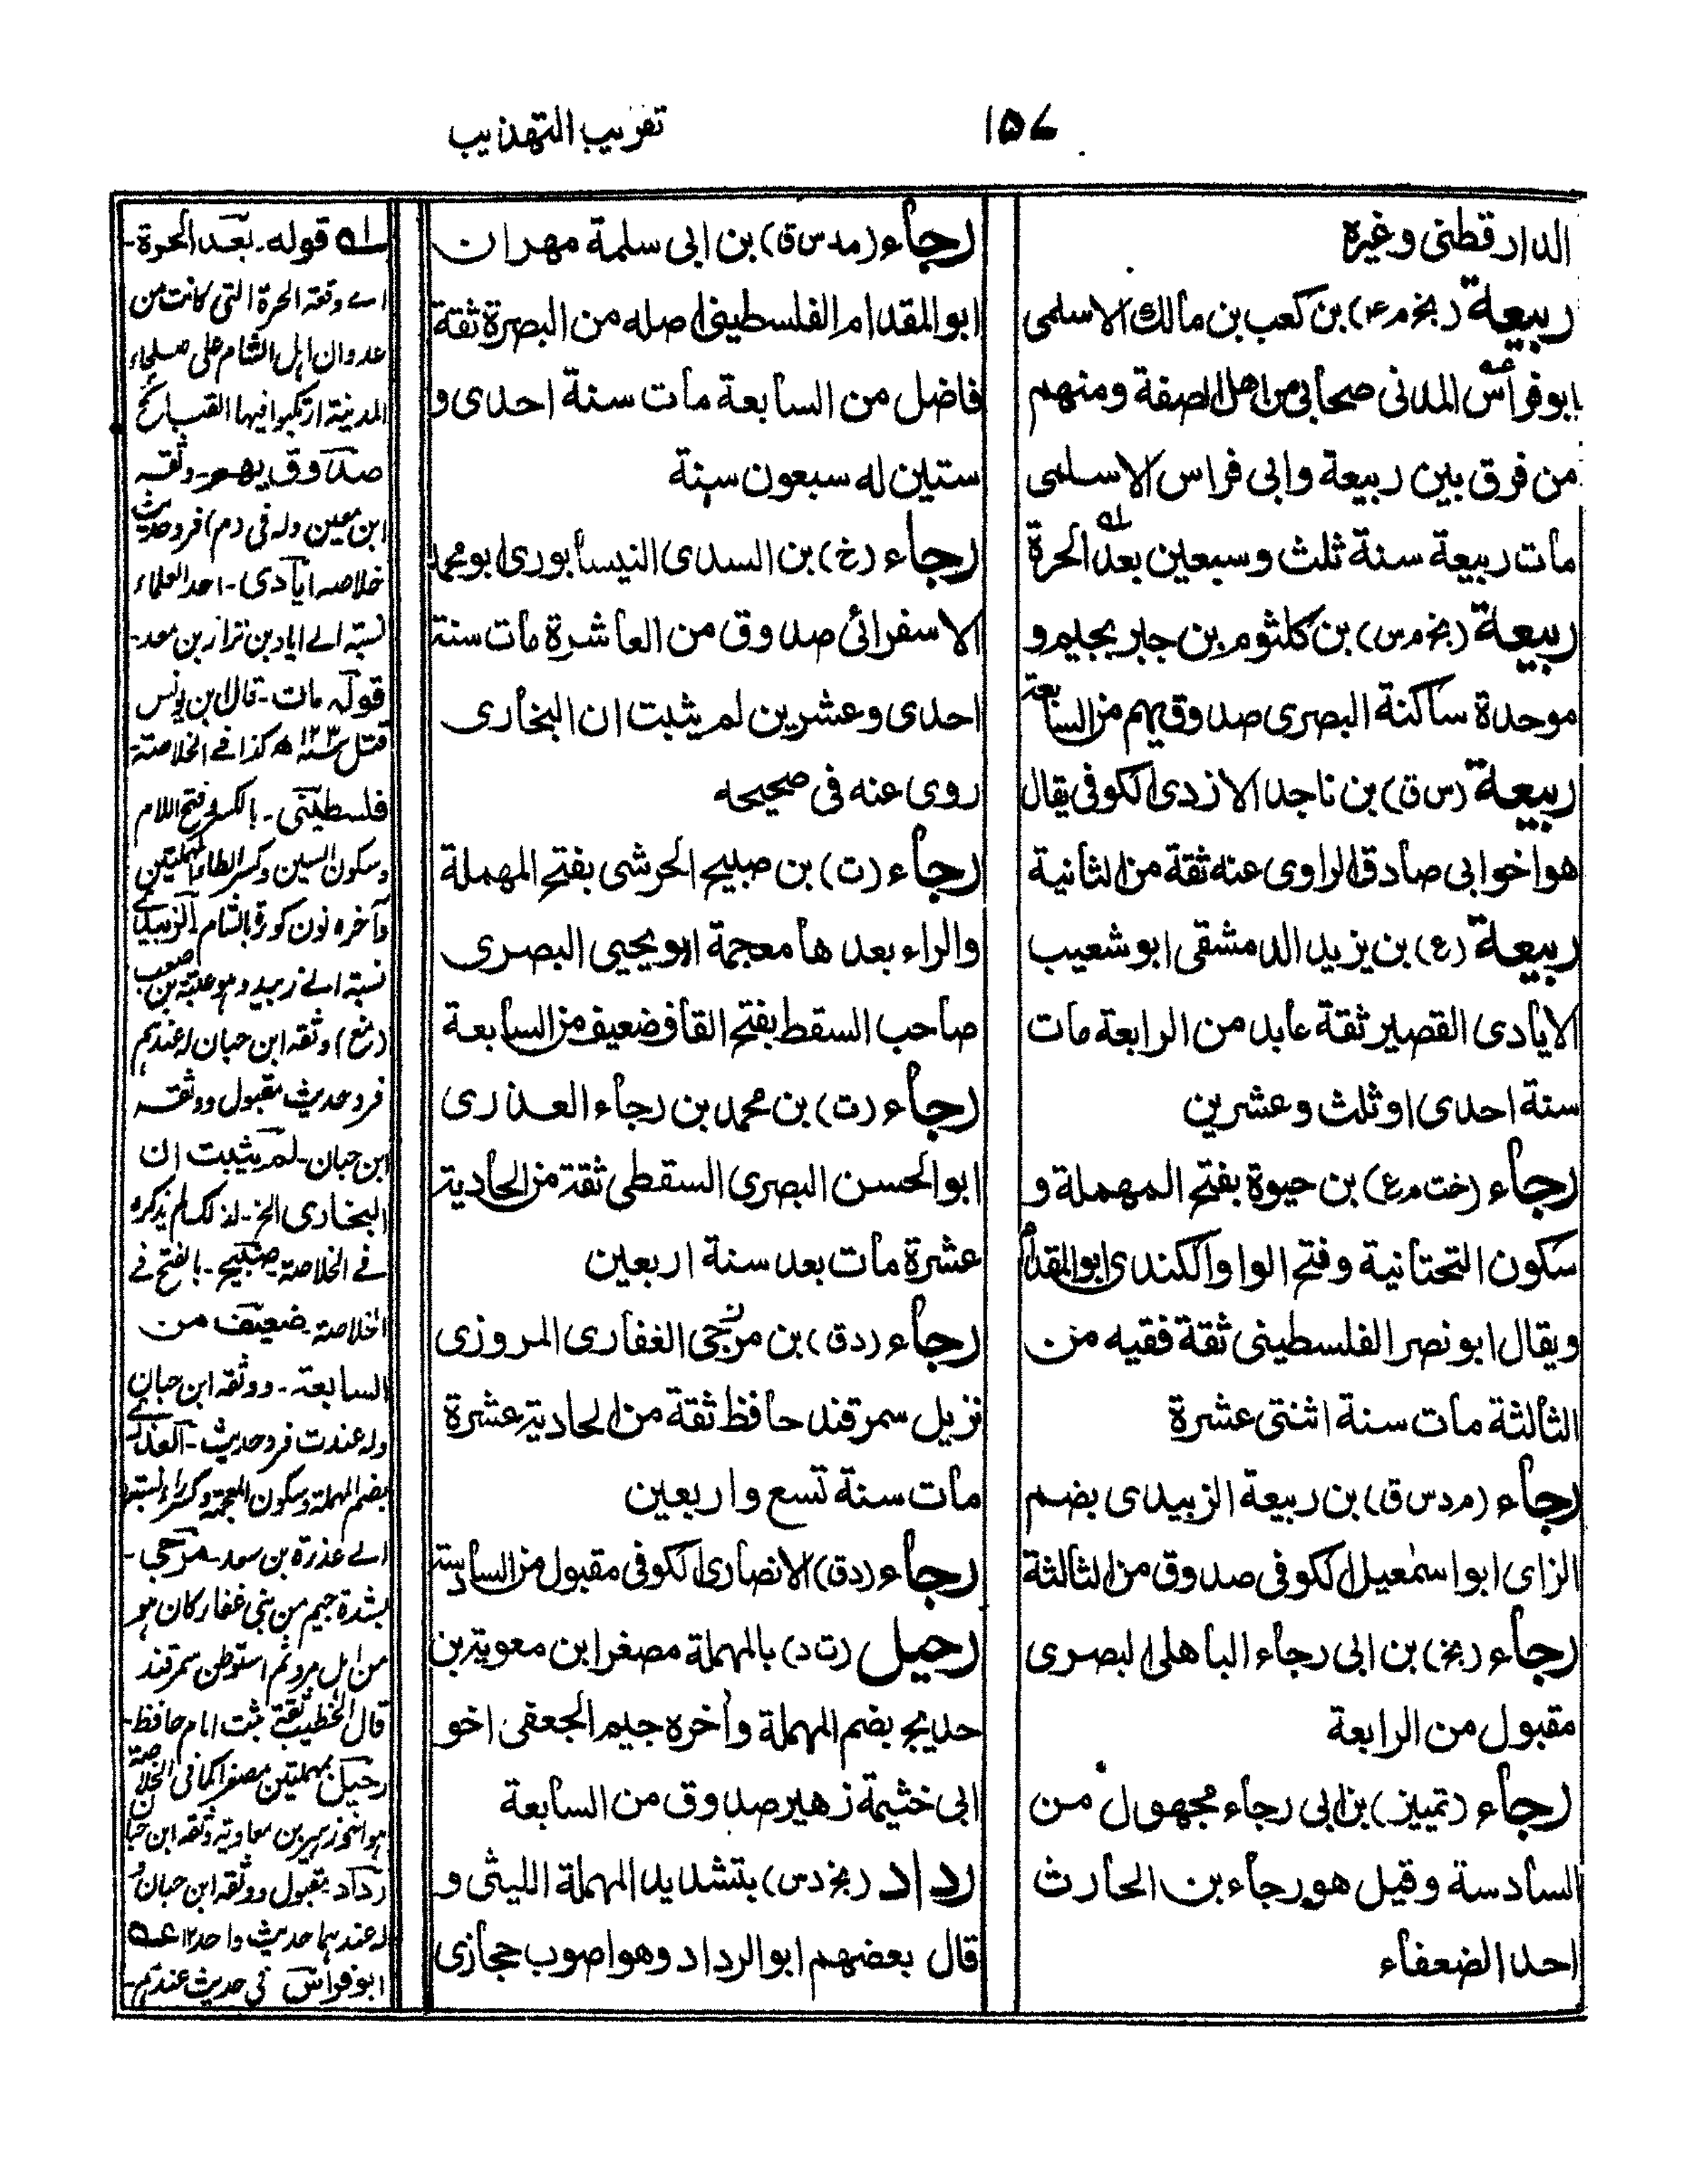 ١٥٧
تقريب التهذيب
الدارقطنى وغيره
ربيعة (بخ م ع) بن كعب بن مالك الاسلمى
ابوفراس المدنى صحابى من اهل الصفة ومنهم
من فرق بين ربيعة وابى فراس الاسلمى
مات ربيعة سنة ثلث وسبعين بعد الحرة
ربيعة (بخ م س) بن كلثوم بن جابر بجليم و
موحدة ساكنة البصرى صدوق يهم من السابعة
ربيعة (س ق) بن ناجد الازدى الكوفى يقال
هو اخو ابى صادق الراوى عنه ثقة من الثانية
ربيعة (ع) بن يزيد الدمشقى ابو شعيب
الايادى القصير ثقة عابد من الرابعة مات
سنة احدى او ثلث وعشرين
رجاء (خت م ع) بن حيوة بفتح المهملة و
سكون التحتانية وفتح الواو الكندى ابو المقدام
ويقال ابو نصر الفلسطينى ثقة فقيه من
الثالثة مات سنة اثنتى عشرة
رجاء (م د س ق) بن ربيعة الزبيدى بضم
الزاى ابو اسمعيل الكوفى صدوق من الثالثة
رجاء (بخ) بن ابى رجاء الباهلى البصرى
مقبول من الرابعة
رجاء (تمييز) بن ابى رجاء مجهول من
السادسة وقيل هو رجاء بن الحارث
احد الضعفاء
رجاء (مد س ق) بن ابى سلمة مهران
ابو المقدام الفلسطينى اصله من البصرة ثقة
فاضل من السابعة مات سنة احدى و
ستين له سبعون سنة
رجاء (خ) بن السدى النيسابورى ابو محمد
الاسفرائى صدوق من العاشرة مات سنة
احدى وعشرين لم يثبت ان البخارى
روى عنه فى صحيحه
رجاء (ت) بن صبيح الحرشى بفتح المهملة
والراء بعدها معجمة ابو يحيى البصرى
صاحب السقط بفتح القاف ضعيف من السابعة
رجاء (ت) بن محمد بن رجاء العذرى
ابو الحسن البصرى السقطى ثقة من الحادية
عشرة مات بعد سنة اربعين
رجاء (د ق) بن مرجى الغفارى المروزى
نزيل سمرقند حافظ ثقة من الحادية عشرة
مات سنة تسع واربعين
رجاء (د ق) الانصارى الكوفى مقبول من السادسة
رحيل (ت د) بالمهملة مصغرا بن معوية بن
حديج بضم المهملة وأخره جيم الجعفى اخو
ابى خثيمة زهير صدوق من السابعة
رداد (بخ د س) بتشديد المهملة الليثى و
قال بعضهم ابو الرداد وهو اصوب حجازى
له قوله بعد الحرة-
اے وقعة الحرة التى كانت من
عدوان اہل الشام على صلحاء
المدينة ارتكبوا فيها القبائح
صدوق يهم- وثقه
ابن معين وله فى (م) فرد حديث
خلاصه ايادى- احد العلماء
نسبته اے اياد بن نزار بن معد-
قوله مات- قال ابن يونس
قتل سنة ١٢٣ه كذا فے الخلاصة
فلسطينى- بالكسر وفتح اللام
وسكون السين وكسر الطاء المهملتين
وآخره نون كورة بالشام الزبيدى
نسبة الے زبيد وهو
(بخ) وثقه ابن حبان له عندهم
فرد حديث مقبول ووثقه
ابن حبان- لم يثبت ان
البخارى الخ- لذلك لم يذكره
فے الخلاصة صبيح- بالفتح فے
الخلاصة ضعيف من
السابعة- ووثقه ابن حبان
وله عند ت فرد حديث- العذرى
بضم المهملة وسكون المعجمة وكسر راء نسبة
الے عذرة بن سعد- مرجى-
بشدة جيم من بنى غفار كان هو
من اہل مرو ثم استوطن سمرقند
قال الخطيب ثقة ثبت امام حافظ-
رحيل بمهملتين مصغرا كما فى الخلاصة
هو اخو زهير بن معاوية وثقه ابن حبان
رداد مقبول ووثقه ابن حبان
له عندهما حديث واحد ١٢ عه
ابو فراس فى حديث عندهم-